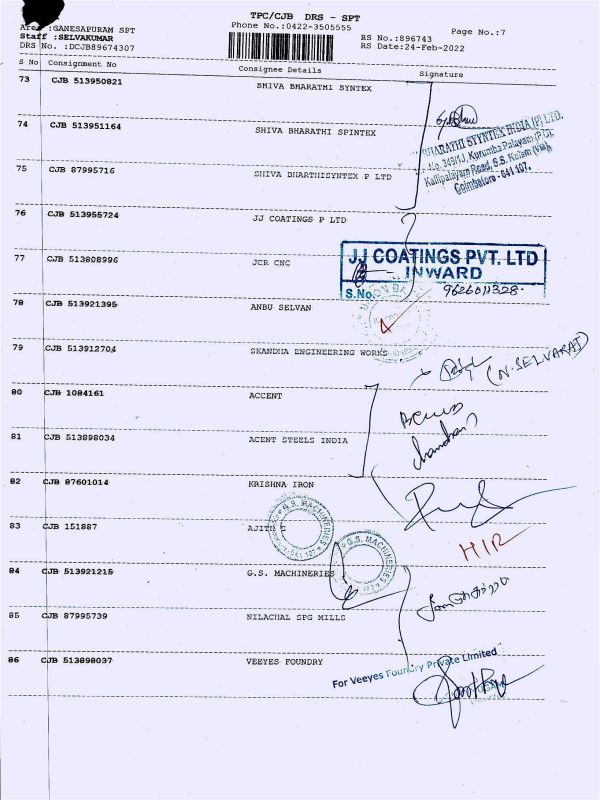 TPC/CJB DRS - SPT
Area :GANESAPURAM SPT
Phone No.:0422-3505555
Page No.:7
Staff :SELVAKUMAR
RS No.:896743
DRS No. :DCJB89674307
RS Date:24-Feb-2022
S No Consignment No Consignee Details Signature
73 CJB 513950821 SHIVA BHARATHI SYNTEX
74 CJB 513951164 SHIVA BHARATHI SPINTEX
BHARATHI SYYNTEX INDIA (P) LTD.
No. 349/1J, Kurumba Palayam (P.O),
Kallipalayam Road, S.S. Kulam (Via),
Coimbatore - 641 107.
75 CJB 87995716 SHIVA BHARTHISYNTEX P LTD
76 CJB 513955724 JJ COATINGS P LTD
JJ COATINGS PVT. LTD
INWARD
S.No. 9626011328
77 CJB 513808996 JCR CNC
78 CJB 513921395 ANBU SELVAN
79 CJB 513912704 SKANDHA ENGINEERING WORKS
(N.SELVARAJ)
80 CJB 1084161 ACCENT
81 CJB 513898034 ACENT STEELS INDIA
82 CJB 87601014 KRISHNA IRON
83 CJB 151887 AJITH S
G.S. MACHINERIES
84 CJB 513921215 G.S. MACHINERIES
G.S. MACHINERIES
85 CJB 87995739 NILACHAL SPG MILLS
86 CJB 513898037 VEEYES FOUNDRY
For Veeyes Foundry Private Limited